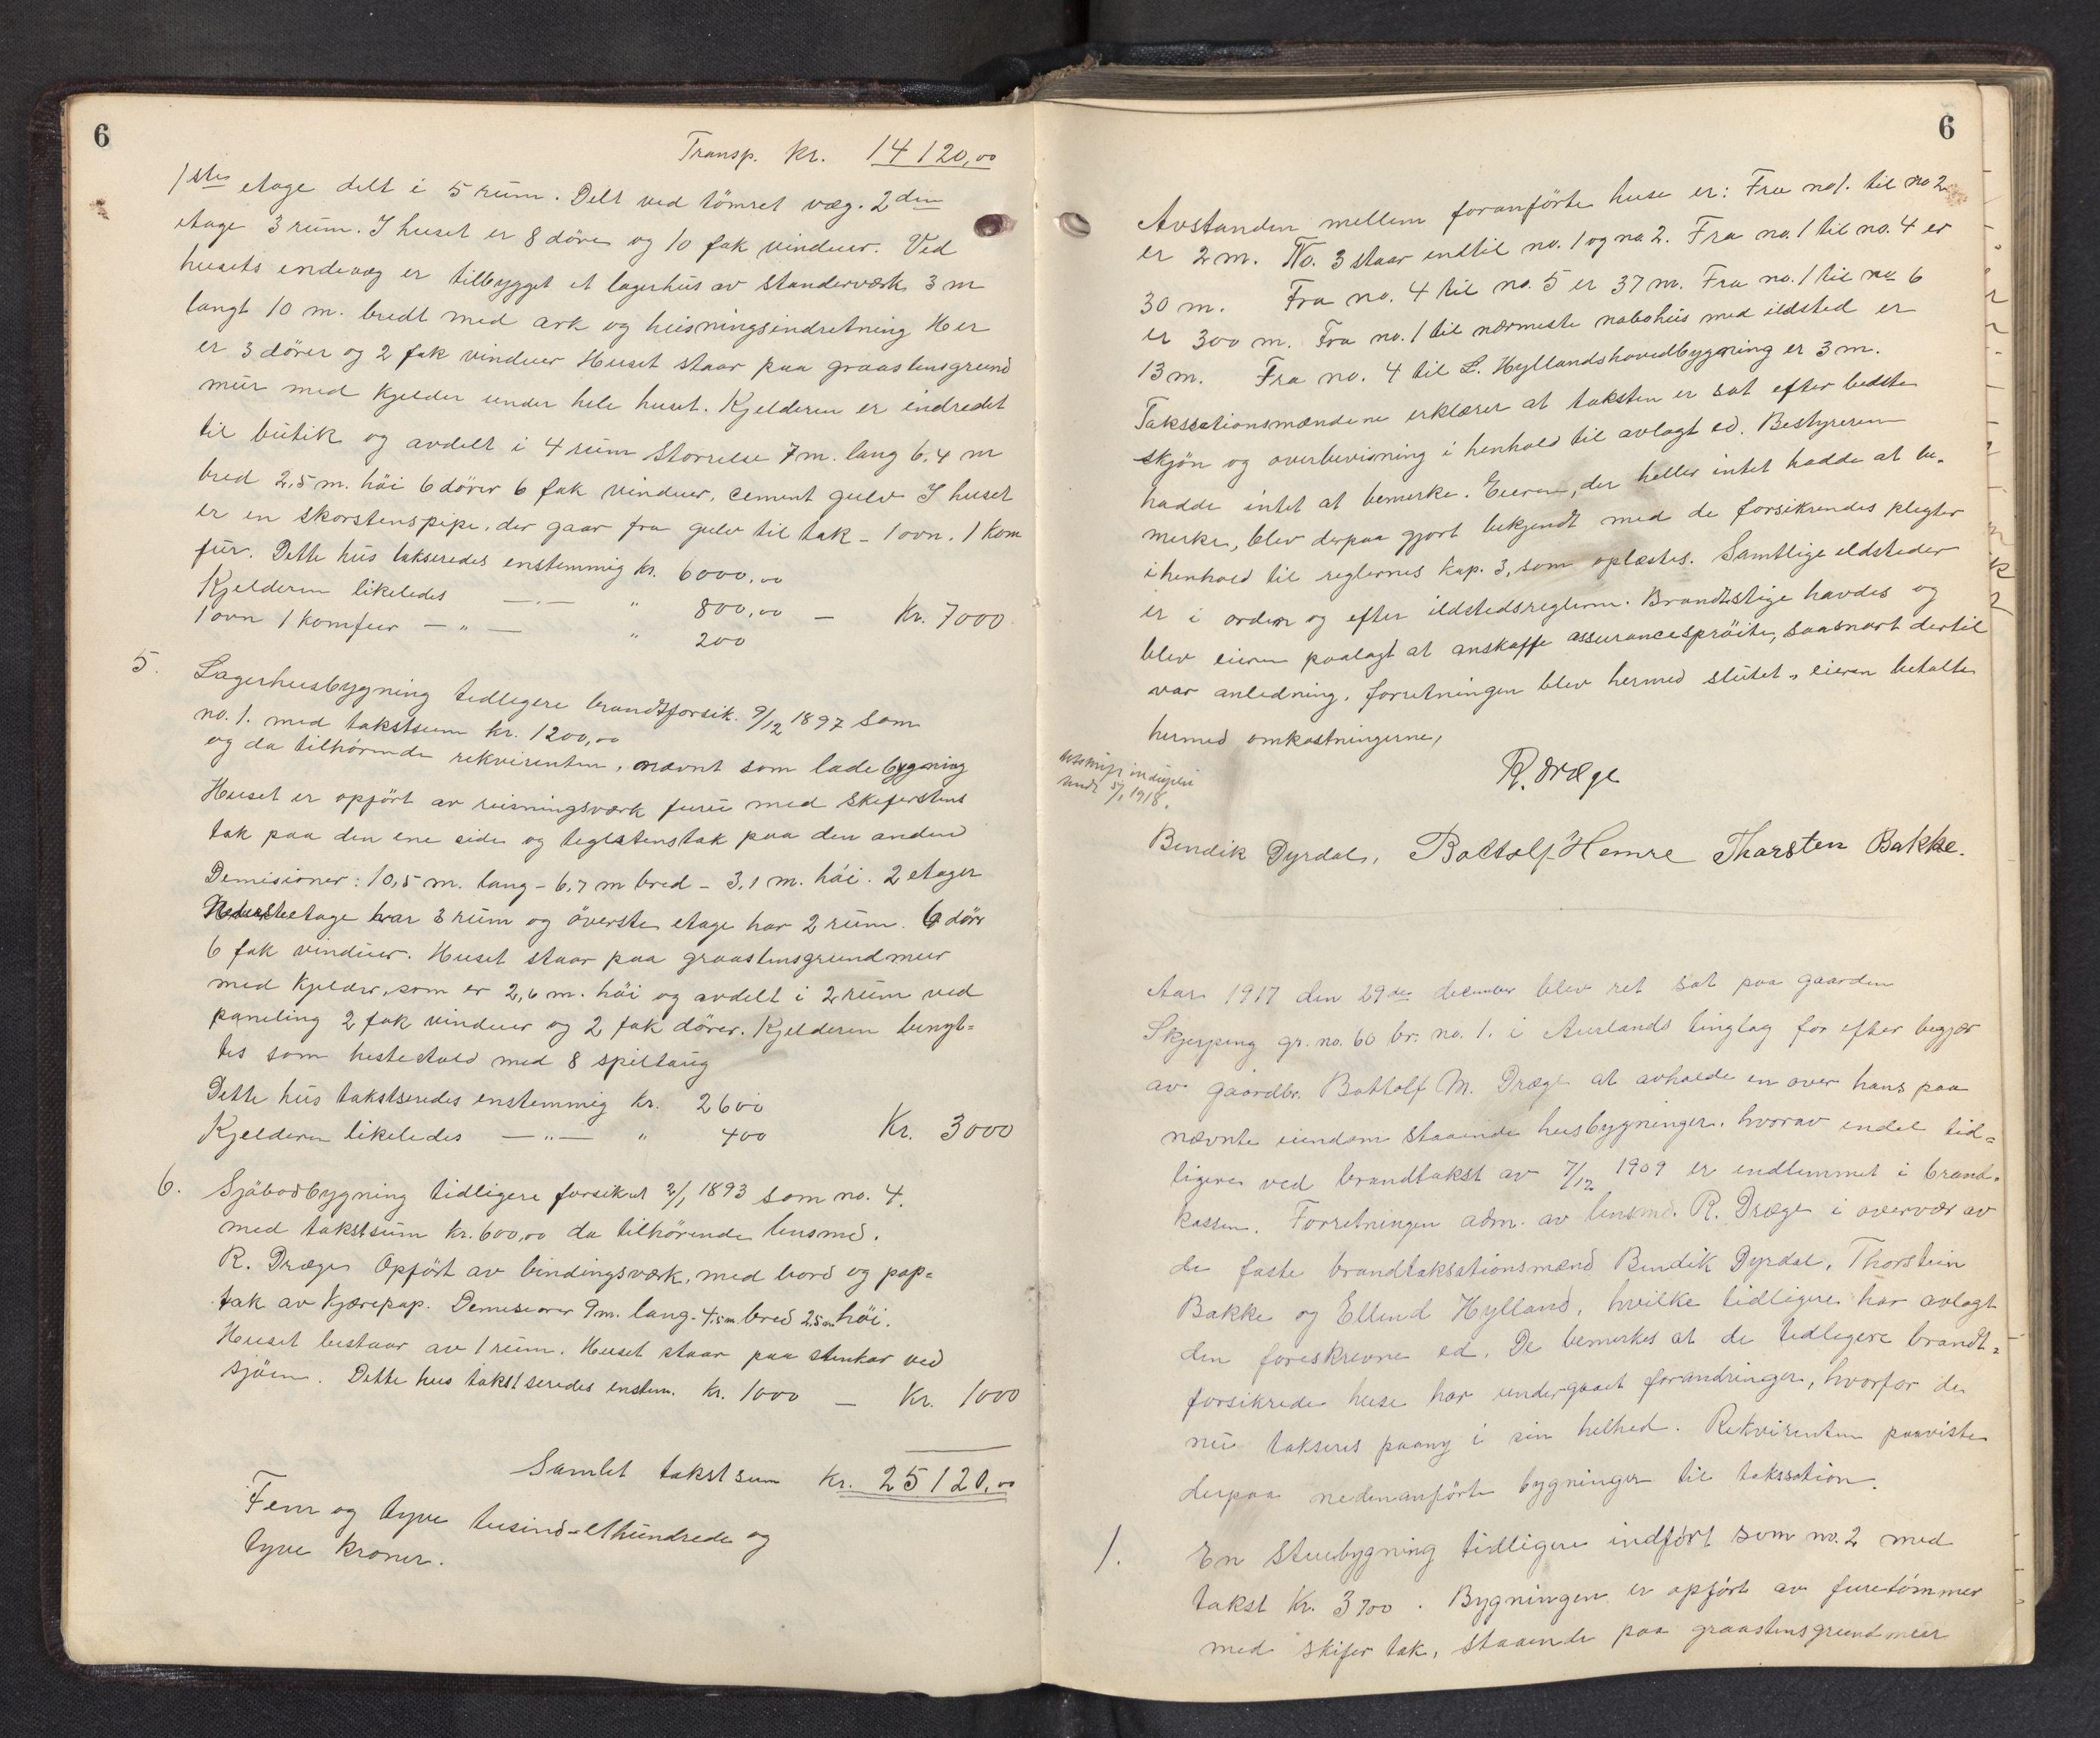 6
Transp. kr. 14120,00
1ste etage delt i 5 rum. Delt ved tömret væg. 2den
etage 3 rum. I huset er 8 döre og 10 fak vinduer. Ved
husets endevæg er tilbygget et lagerhus av standerværk 3 m
langt 10 m. bredt med ark og heisningsindretning Her
er 3 dörer og 2 fak vinduer Huset staar paa graastensgrund
mur med kjelder under hele huset. Kjelderen er indredet
til butik og avdelt i 4 rum Storrelse 7 m. lang 6,4 m
bred 2,5 m. höi 6 dörer 6 fak vinduer, cement gulv I huset
er en skorstenspipe, der gaar fra gulv til tak - 1 ovn. 1 kom
fur. Dette hus takseredes enstemmig kr. 6000,00
Kjelderen likeledes — " — " 800,00 —
1 ovn 1 komfur — " — " 200 Kr. 7000
5. Lagerhusbygning tidligere brandtforsik. 9/12 1897 som
no. 1. med takstsum kr. 1200,00
og da tilhörende rekvirenten, nævnt som ladebygning
Huset er opfört av reisningsværk furu med skeferstens
tak paa den ene side og teglstenstak paa den anden
Demisioner: 10,5 m. lang - 6,7 m bred - 3,1 m. höi. 2 etager
Nedersteetage har 3 rum og överste etage har 2 rum. 6 dörr
6 fak vinduer. Huset staar paa graastensgrundmur
med kjelder, som er 2,6 m. höi og avdelt i 2 rum ved
paneling 2 fak vinduer og 2 fak dörer. Kjelderen benyt=
tes som hestestald med 8 spiltaug
Dette hus takstseredes enstemmig kr. 2600
Kjelderen likeledes — " — " 400 Kr. 3000
6. Sjöbodbygning tidligere forsikret 2/1 1893 som no. 4.
med takstsum kr. 600,00 da tilhörende lensmd.
R. Dræge Opfört av bindingsværk, med bord og pap=
tak av tjærepap. Demisioner 9 m. lang - 4.5 m bred 2.5 m höi.
Huset bestaar av 1 rum. Huset staar paa stenkar ved
sjöen. Dette hus takstseredes enstem. kr. 1000 — Kr. 1000
Samlet takstsum kr. 25120,00
Fem og tyve tusind-ethundrede og
tyve kroner.
6
Avstanden mellem foranförte huse er: Fra no 1. til no 2
er 2 m. No. 3 staar indtil no. 1 og no. 2. Fra no. 1 til no. 4 er
30 m. Fra no. 4 til no. 5 er 37 m. Fra no. 1 til no 6
er 300 m. Fra no. 1 til nærmeste nabohus med ildsted er
13 m. Fra no. 4 til L. Hyllands hovedbygning er 3 m.
Takssationsmændene erklærer at taksten er sat efter bedste
skjön og overbevisning i henhold til avlagt ed. Bestyreren
hadde intet at bemerke. Eieren, der heller intet hadde at be-
merke, blev derpaa gjort bekjendt med de forsikrendes plegter
i henhold til reglernes kap. 3, som oplæstes. Samtlige eldsteder
er i orden og efter ildstedsreglerne. Brandtstige havdes og
blev eieren paalagt at anskaffe assurancespröite, saasnart dertil
var anledning. Forretningen blev hermed slutet, eieren betalte
hermed omkostningerne,
R. Dræge
sendt 5/1 1918.
Bendik Dyrdal, Bottolf Hemre Thorsten Bakke.
Aar 1917 den 29de december blev ret sat paa gaarden
Skjerping gr. no. 60 br. no. 1. i Aurlands tinglag for efter begjær
av gaardbr. Bottolf M. Dræge at avholde en over hans paa
nævnte eiendom staaende husbygninger. hvorav endel tid=
ligere ved brandtakst av 7/12 1909 er indlemmet i brand-
kassen. Forretningen adm. av lensmd. R. Dræge i overvær av
de faste brandtaksationsmænd Bendik Dyrdal, Thorstein
Bakke og Ellend Hylland, hvilke tidligere har avlagt
den foreskrevne ed. De bemerkes at de tidligere brandt=
forsikrede huse har undergaaet forandringer, hvorfor de
nu takseres paany i sin helhed. Rekvirenten paaviste
derpaa nedenanförte bygninger til takssation.
1. En stuebygning tidligere indfört som no. 2 med
takst kr. 3700. Bygningen er opfört av furetömmer
med skifer tak, staaende paa graastensgrundmuur